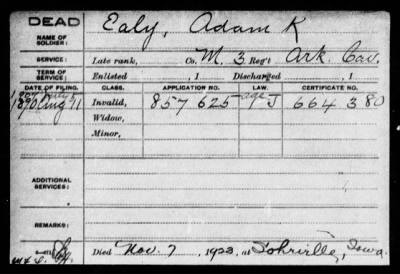 DEAD
NAME OF SOLDIER:
Ealy, Adam K
SERVICE:
Late rank, Co. M, 3 Reg't Ark. Cav.
TERM OF SERVICE:
Enlisted , 1 Discharged , 1
DATE OF FILING. CLASS. APPLICATION NO. LAW. CERTIFICATE NO.
1890 Aug 11 Invalid, 857 625 J 664 380
Widow,
Minor,
ADDITIONAL SERVICES:
REMARKS:
Died Nov. 7 , 1923, at Lohrville, Iowa.